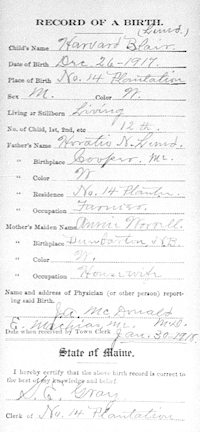 RECORD OF A BIRTH.
(Lund.)
Child's Name Harvard Blair
Date of Birth Dec. 26-1917.
Place of Birth No. 14 Plantation
Sex M. Color W.
Living or Stillborn Living
No. of Child, 1st, 2nd, etc 12th
Father's Name Horatio N. Lund.
" Birthplace Cooper, Me.
" Color W
" Residence No. 14 Planta.
" Occupation Farmer.
Mother's Maiden Name Annie
" Birthplace Dumbarton N.B.
" Color W.
" Occupation Housewife
Name and address of Physician (or other person) report-
ing said Birth.
J.A. McDonald
E. Machias, Me. M.D.
Date when received by Town Clerk Jan. 30-1918.
State of Maine.
I hereby certify that the above birth record is correct to
the best of my knowledge and belief.
S. E. Gray
Clerk of No. 14 Plantation